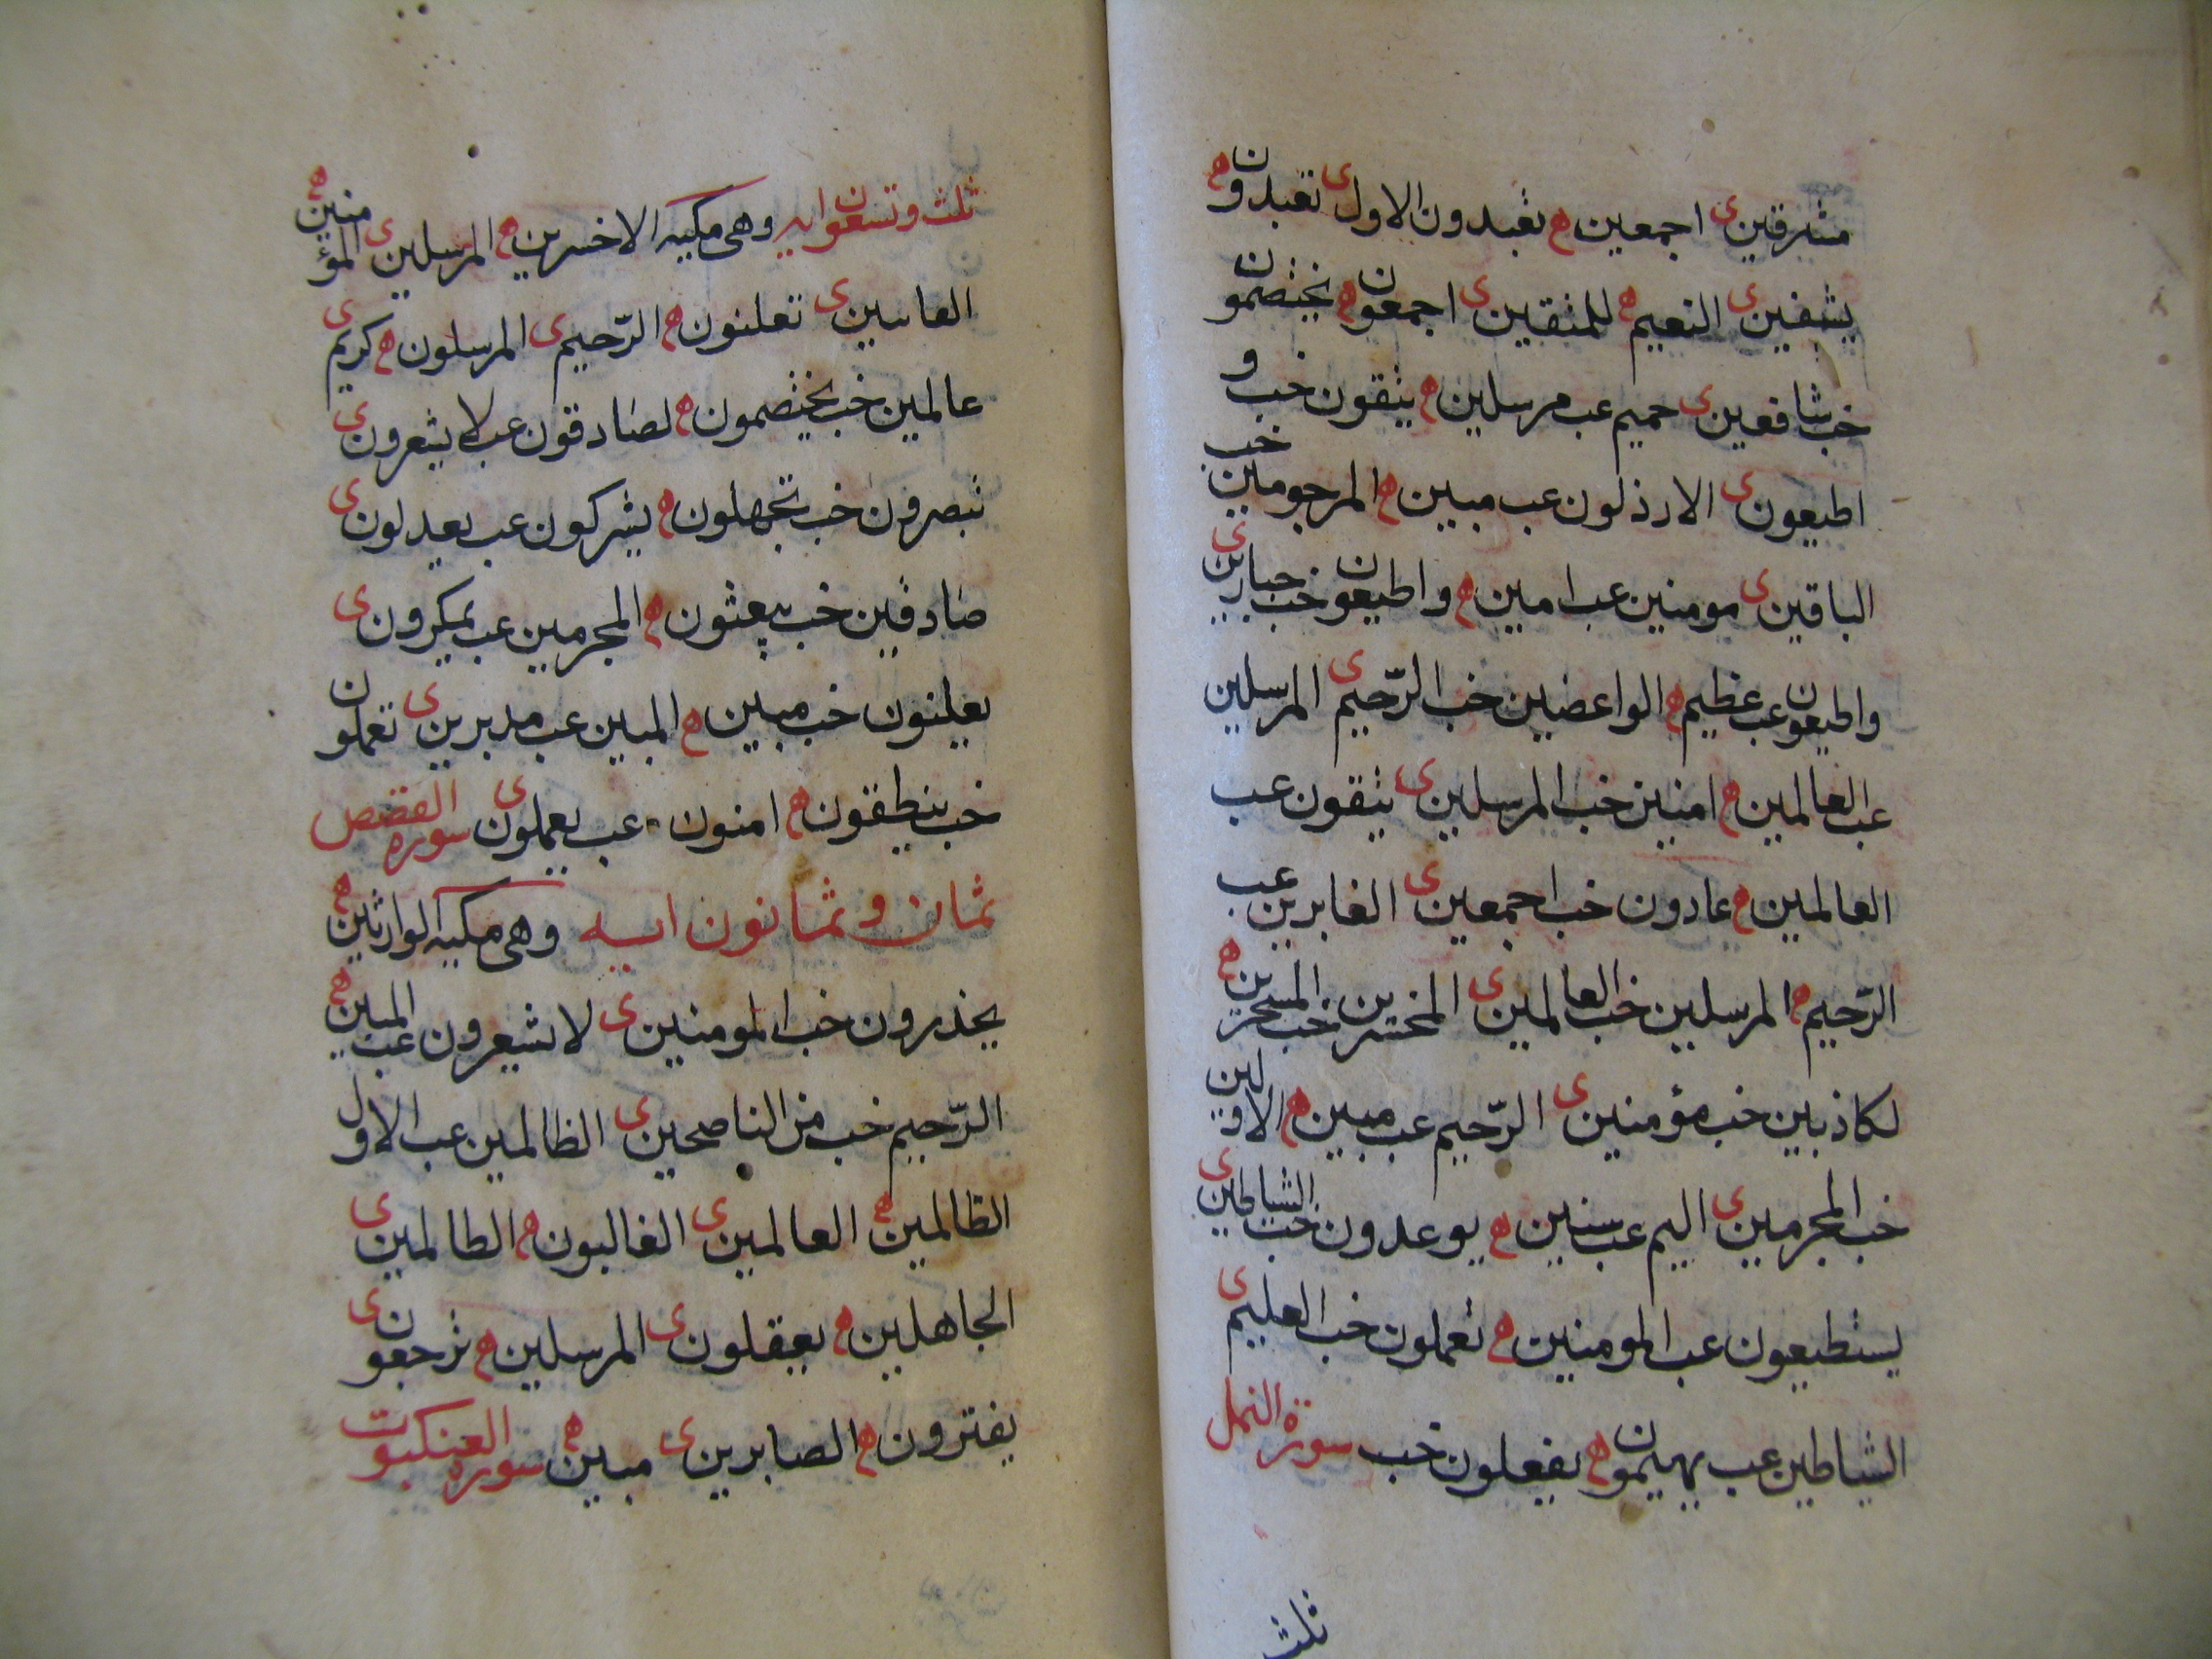 مشرقين ى اجمعين ه تعبدون الاول ى تعبدون ه
يشفين ى النعيم ه للمتقين ى اجمعون ه يختصمون
خب شافعين ى حميم عب مرسلين ه يتقون خب و
اطيعون ى الارذلون عب مبين ه المرجومين خب
الباقين ى مومنين عب امين ه واطيعون خب جبارين ى
واطيعون عب عظيم ه الواعضين خب الرّحيم ى المرسلين
عب العالمين ه امنين خب المرسلين ى يتقون عب
العالمين ه عادون خب اجمعين ى الغابرين عب
الرّحيم ه المرسلين خب العالمين ى المخسرين خب المسحرين ه
لكاذبين خب مؤمنين ى الرّحيم عب مبين ه الاولين
خب المجرمين ى اليم عب سنين ه يوعدون خب الشياطين ى
يستطيعون عب المومنين ه تعملون خب العليم ى
الشياطين عب يهيمون ه يفعلون خب سورة النمل
ثلث
ثلث وتسعون ايه وهى مكيه الاخسرين ه المرسلين ى المؤمنين ه
الغاىبين ى تعلنون ه الرّحيم ى المرسلون ه كريم ى
عالمين خب يختصمون ه لصادقون عب لا يشعرون ى
تبصرون خب تجهلون ه يشركون عب يعدلون ى
صادقين خب يبعثون ه المجرمين عب يمكرون ى
يعلنون خب مبين ه المبين عب مدبرين ى تعملون
خب ينطقون ه امنون عب يعملون ى سوره القصص
ثمان و ثمانون ايه وهى مكيه الوارثين ه
يحذرون خب المومنين ى لا يشعرون عب المبين ه
الرّحيم خب من الناصحين ى الظالمين عب الاول
الظالمين ه العالمين ى الغالبون ه الظالمين ى
الجاهلين ه يعقلون ى المرسلين ه ترجعون ى
يفترون ه الصابرين ى مبين ه سوره العنكبوت